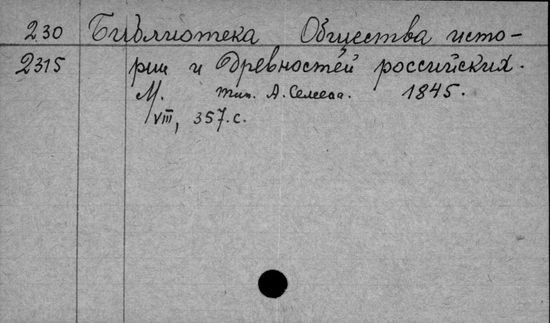 230 Библиотека Общества исто-
2315 рии и Древностей российских.
М. тип. А. Семена. 1845.
VIII, 357.с.